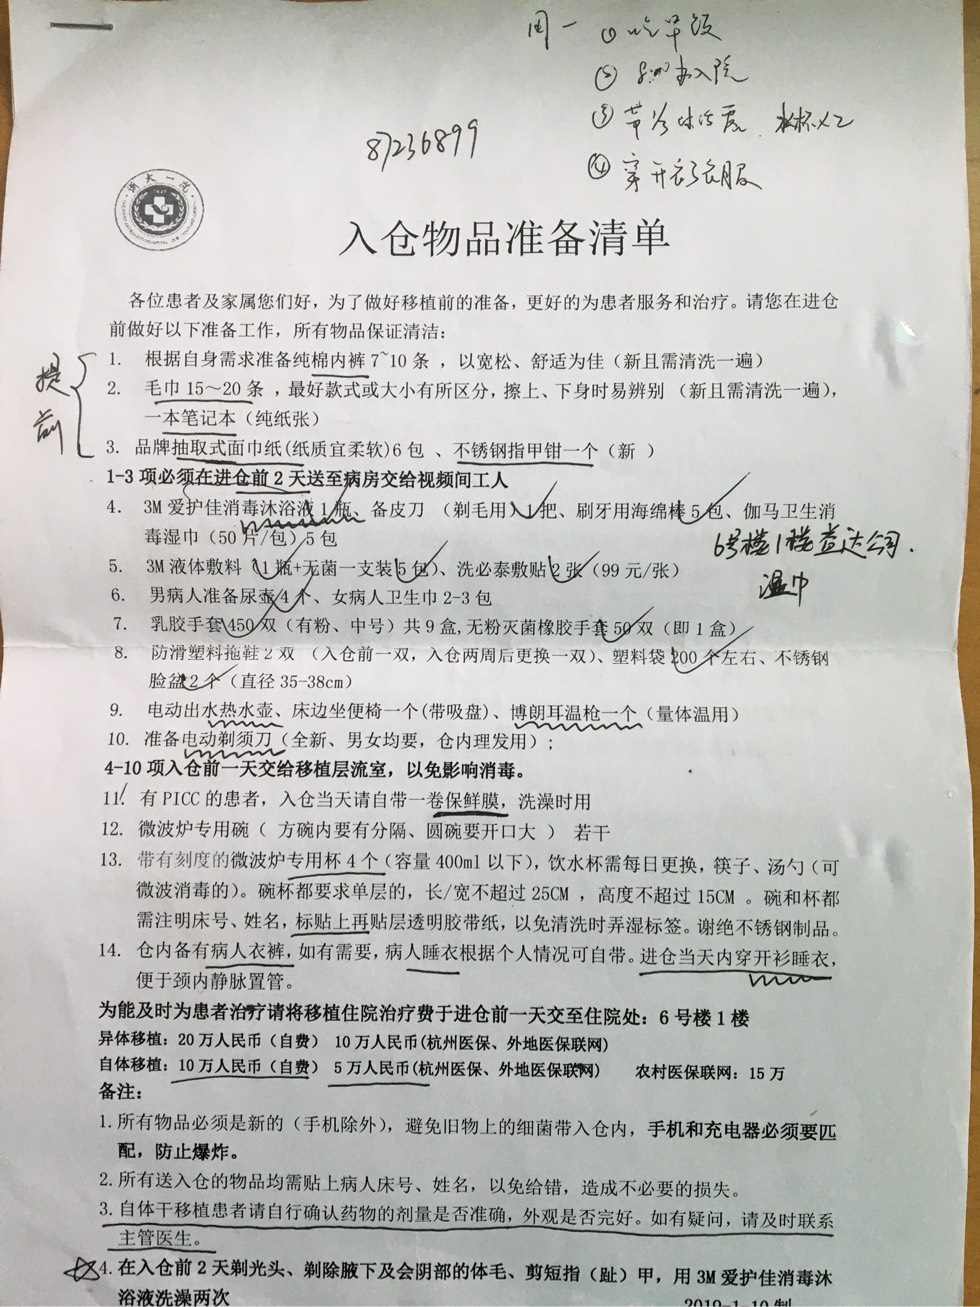 周一 ①吃早饭
② 办入院
③带
④穿开衫衣服
87236899
浙大一院
入仓物品准备清单
各位患者及家属您们好，为了做好移植前的准备，更好的为患者服务和治疗。请您在进仓
前做好以下准备工作，所有物品保证清洁：
提前
1. 根据自身需求准备纯棉内裤 7~10 条 ，以宽松、舒适为佳（新且需清洗一遍）
2. 毛巾 15～20 条 ，最好款式或大小有所区分，擦上、下身时易辨别 （新且需清洗一遍），
一本笔记本（纯纸张）
3. 品牌抽取式面巾纸(纸质宜柔软)6 包 、不锈钢指甲钳一个（新 ）
1-3 项必须在进仓前 2 天送至病房交给视频间工人
4. 3M 爱护佳消毒沐浴液 1 瓶、备皮刀 （剃毛用）1 把、刷牙用海绵棒 5 包、伽马卫生消
毒湿巾（50 片/包）5 包
6号楼1楼益达公司.
湿巾
5. 3M 液体敷料（1 瓶+无菌一支装 5 包）、洗必泰敷贴 2 张（99 元/张）
6. 男病人准备尿壶 4 个、女病人卫生巾 2-3 包
7. 乳胶手套 450 双（有粉、中号）共 9 盒,无粉灭菌橡胶手套 50 双（即 1 盒）
8. 防滑塑料拖鞋 2 双 （入仓前一双，入仓两周后更换一双）、塑料袋 200 个左右、不锈钢
脸盆 2 个（直径 35-38cm）
9. 电动出水热水壶、床边坐便椅一个(带吸盘)、博朗耳温枪一个（量体温用）
10. 准备电动剃须刀（全新、男女均要，仓内理发用）;
4-10 项入仓前一天交给移植层流室，以免影响消毒。
11. 有 PICC 的患者，入仓当天请自带一卷保鲜膜，洗澡时用
12. 微波炉专用碗（ 方碗内要有分隔、圆碗要开口大 ） 若干
13. 带有刻度的微波炉专用杯 4 个（容量 400ml 以下），饮水杯需每日更换，筷子、汤勺（可
微波消毒的）。碗杯都要求单层的，长/宽不超过 25CM ，高度不超过 15CM 。碗和杯都
需注明床号、姓名，标贴上再贴层透明胶带纸，以免清洗时弄湿标签。谢绝不锈钢制品。
14. 仓内备有病人衣裤，如有需要，病人睡衣根据个人情况可自带。进仓当天内穿开衫睡衣，
便于颈内静脉置管。
为能及时为患者治疗请将移植住院治疗费于进仓前一天交至住院处：6 号楼 1 楼
异体移植：20 万人民币（自费） 10 万人民币(杭州医保、外地医保联网)
自体移植：10 万人民币（自费） 5 万人民币(杭州医保、外地医保联网) 农村医保联网：15 万
备注：
1.所有物品必须是新的（手机除外），避免旧物上的细菌带入仓内，手机和充电器必须要匹
配，防止爆炸。
2.所有送入仓的物品均需贴上病人床号、姓名，以免给错，造成不必要的损失。
3.自体干移植患者请自行确认药物的剂量是否准确，外观是否完好。如有疑问，请及时联系
主管医生。
4.在入仓前 2 天剃光头、剃除腋下及会阴部的体毛、剪短指（趾）甲，用 3M 爱护佳消毒沐
浴液洗澡两次
2019-1-10 制